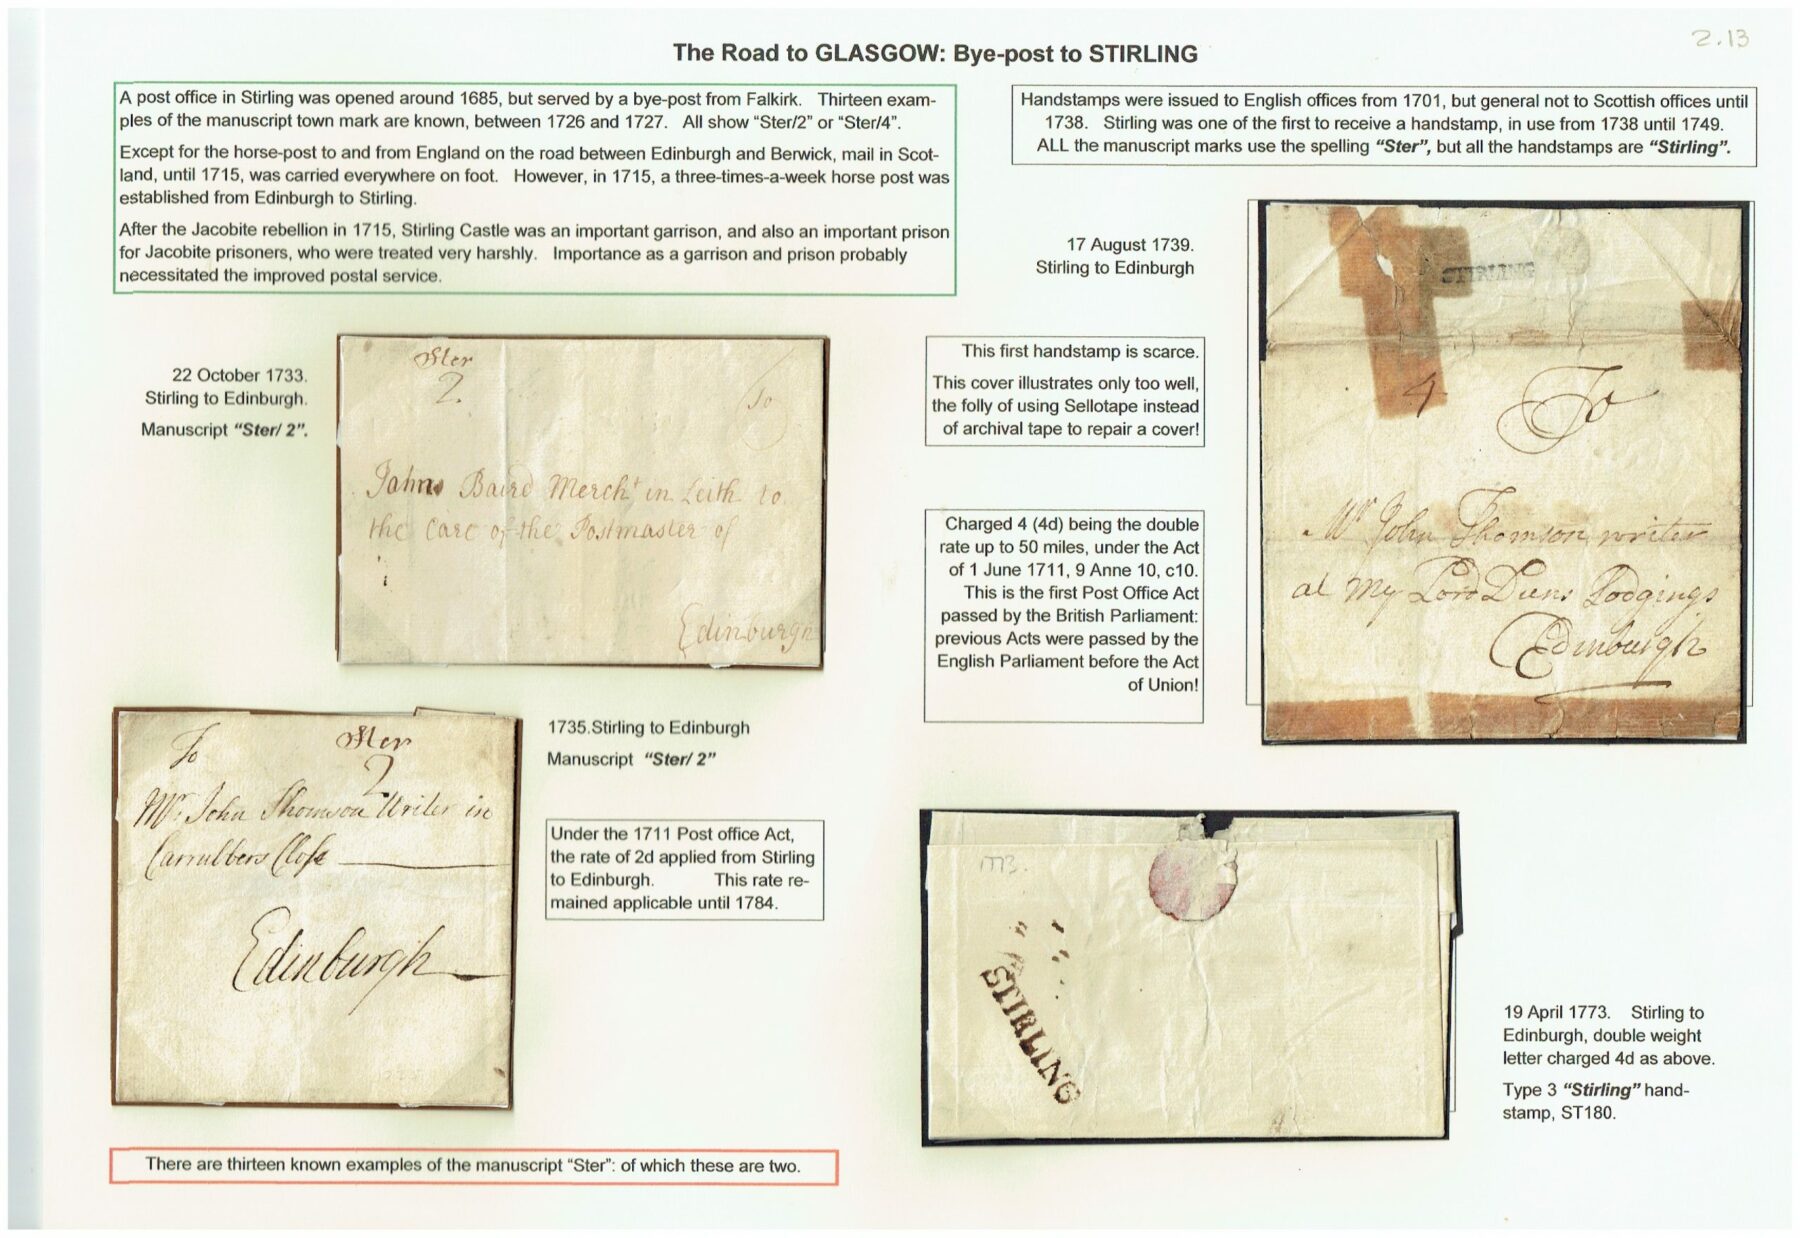 2.13
The Road to GLASGOW: Bye-post to STIRLING
A post office in Stirling was opened around 1685, but served by a bye-post from Falkirk. Thirteen exam-
ples of the manuscript town mark are known, between 1726 and 1727. All show “Ster/2” or “Ster/4”.
Except for the horse-post to and from England on the road between Edinburgh and Berwick, mail in Scot-
land, until 1715, was carried everywhere on foot. However, in 1715, a three-times-a-week horse post was
established from Edinburgh to Stirling.
After the Jacobite rebellion in 1715, Stirling Castle was an important garrison, and also an important prison
for Jacobite prisoners, who were treated very harshly. Importance as a garrison and prison probably
necessitated the improved postal service.
22 October 1733.
Stirling to Edinburgh.
Manuscript “Ster/ 2”.
Ster
2.
To
Baird Mercht in Leith to
the Care of the Postmaster of
Edinburgh
To
Ster
2
Mr John Thomson Writer in
Carrubbers Close
Edinburgh
1735.Stirling to Edinburgh
Manuscript “Ster/ 2”
Under the 1711 Post office Act,
the rate of 2d applied from Stirling
to Edinburgh. This rate re-
mained applicable until 1784.
There are thirteen known examples of the manuscript “Ster”: of which these are two.
Handstamps were issued to English offices from 1701, but general not to Scottish offices until
1738. Stirling was one of the first to receive a handstamp, in use from 1738 until 1749.
ALL the manuscript marks use the spelling “Ster”, but all the handstamps are “Stirling”.
17 August 1739.
Stirling to Edinburgh
This first handstamp is scarce.
This cover illustrates only too well,
the folly of using Sellotape instead
of archival tape to repair a cover!
Charged 4 (4d) being the double
rate up to 50 miles, under the Act
of 1 June 1711, 9 Anne 10, c10.
This is the first Post Office Act
passed by the British Parliament:
previous Acts were passed by the
English Parliament before the Act
of Union!
STIRLING
4
To
Mr John Thomson writer
at My Lord Duns Lodgings
Edinburgh
1773.
STIRLING
19 April 1773. Stirling to
Edinburgh, double weight
letter charged 4d as above.
Type 3 “Stirling” hand-
stamp, ST180.